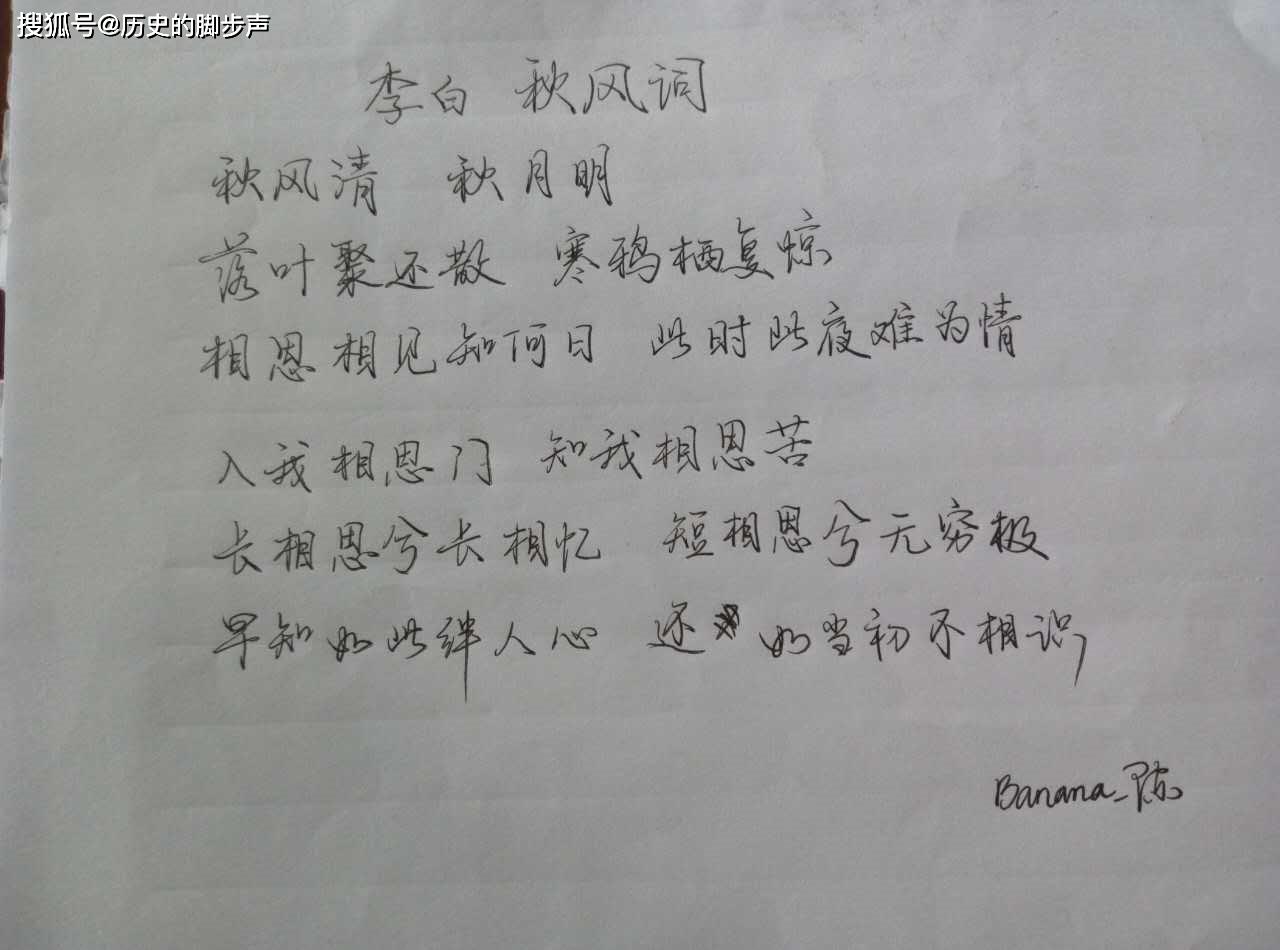 搜狐号@历史的脚步声
李白 秋风词
秋风清 秋月明
落叶聚还散 寒鸦栖复惊
相思相见知何日 此时此夜难为情
入我相思门 知我相思苦
长相思兮长相忆 短相思兮无穷极
早知如此绊人心 还如当初不相识
Banana_陈